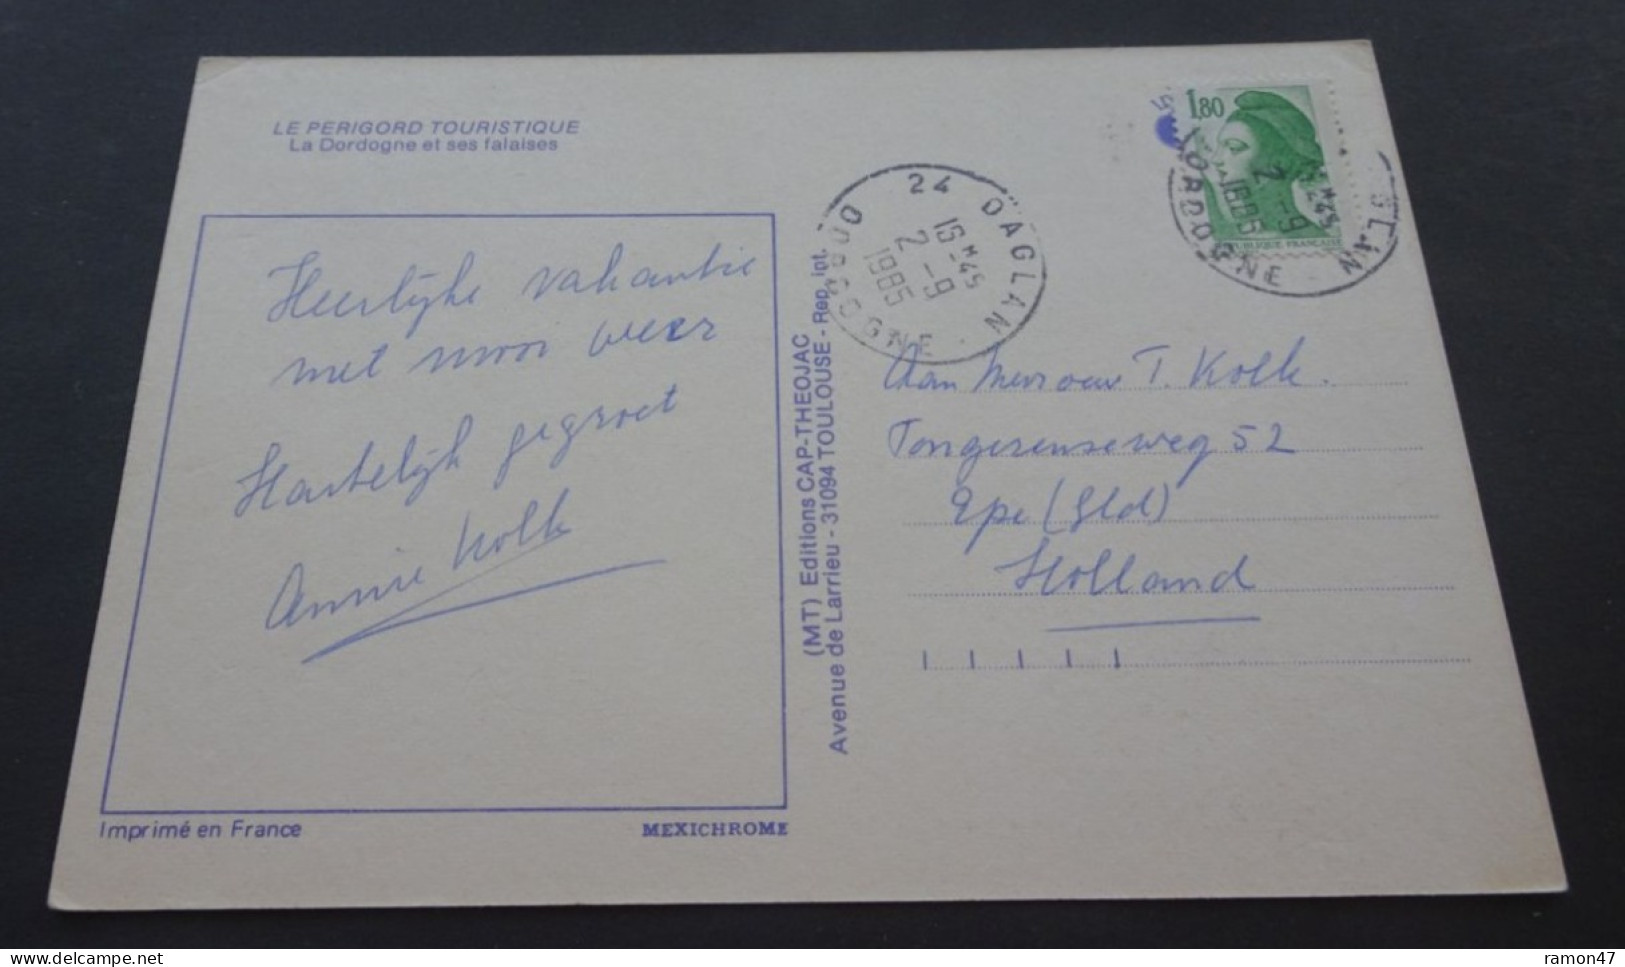 LE PERIGORD TOURISTIQUE
La Dordogne et ses falaises
Heerlijke vakantie
met mooi weer
Hartelijk gegroet
Annie Kolk
Imprimé en France
MEXICHROME
(MT) Editions CAP-THEOJAC
Avenue de Larrieu - 31094 TOULOUSE - Rep. int.
24 DAGLAN
15 H 45
2 - 9
1985
DORDOGNE
1,80
RÉPUBLIQUE FRANÇAISE
15 H 45
2 - 9
1985
DORDOGNE
Aan Mevrouw T. Kolk.
Tongerenseweg 52
Epe (Gld)
Holland
ramon47